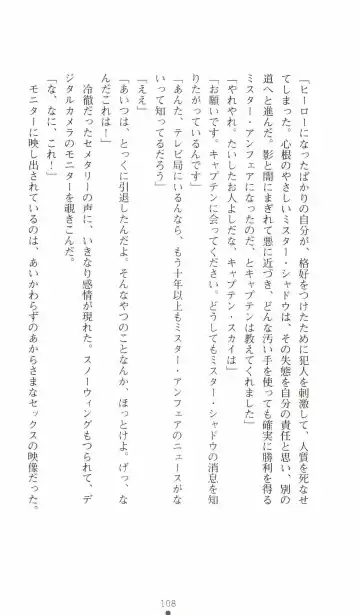 「ヒーローになったばかりの自分が、格好をつけたために犯人を刺激して、人質を死なせ
てしまった。心根のやさしいミスター・シャドウは、その失態を自分の責任と思い、別の
道へと進んだ。影と闇にまぎれて悪に近づき、どんな汚い手を使っても確実に勝利を得る
ミスター・アンフェアになったのだ、とキャプテンは教えてくれました」
「やれやれ。たいしたお人よしだな、キャプテン・スカイは」
「お願いです。キャプテンに会ってください。どうしてもミスター・シャドウの消息を知
りたがっているんです」
「あんた、テレビ局にいるんなら、もう十年以上もミスター・アンフェアのニュースがな
いって知ってるだろう」
「ええ」
「あいつは、とっくに引退したんだよ。そんなやつのことなんか、ほっとけよ。げっ、な
んだこれは！」
冷徹だったセメタリーの声に、いきなり感情が現れた。スノーウィングもつられて、デ
ジタルカメラのモニターを覗きこんだ。
「な、なに、これ！」
モニターに映し出されているのは、あいかわらずのあからさまなセックスの映像だった。
108